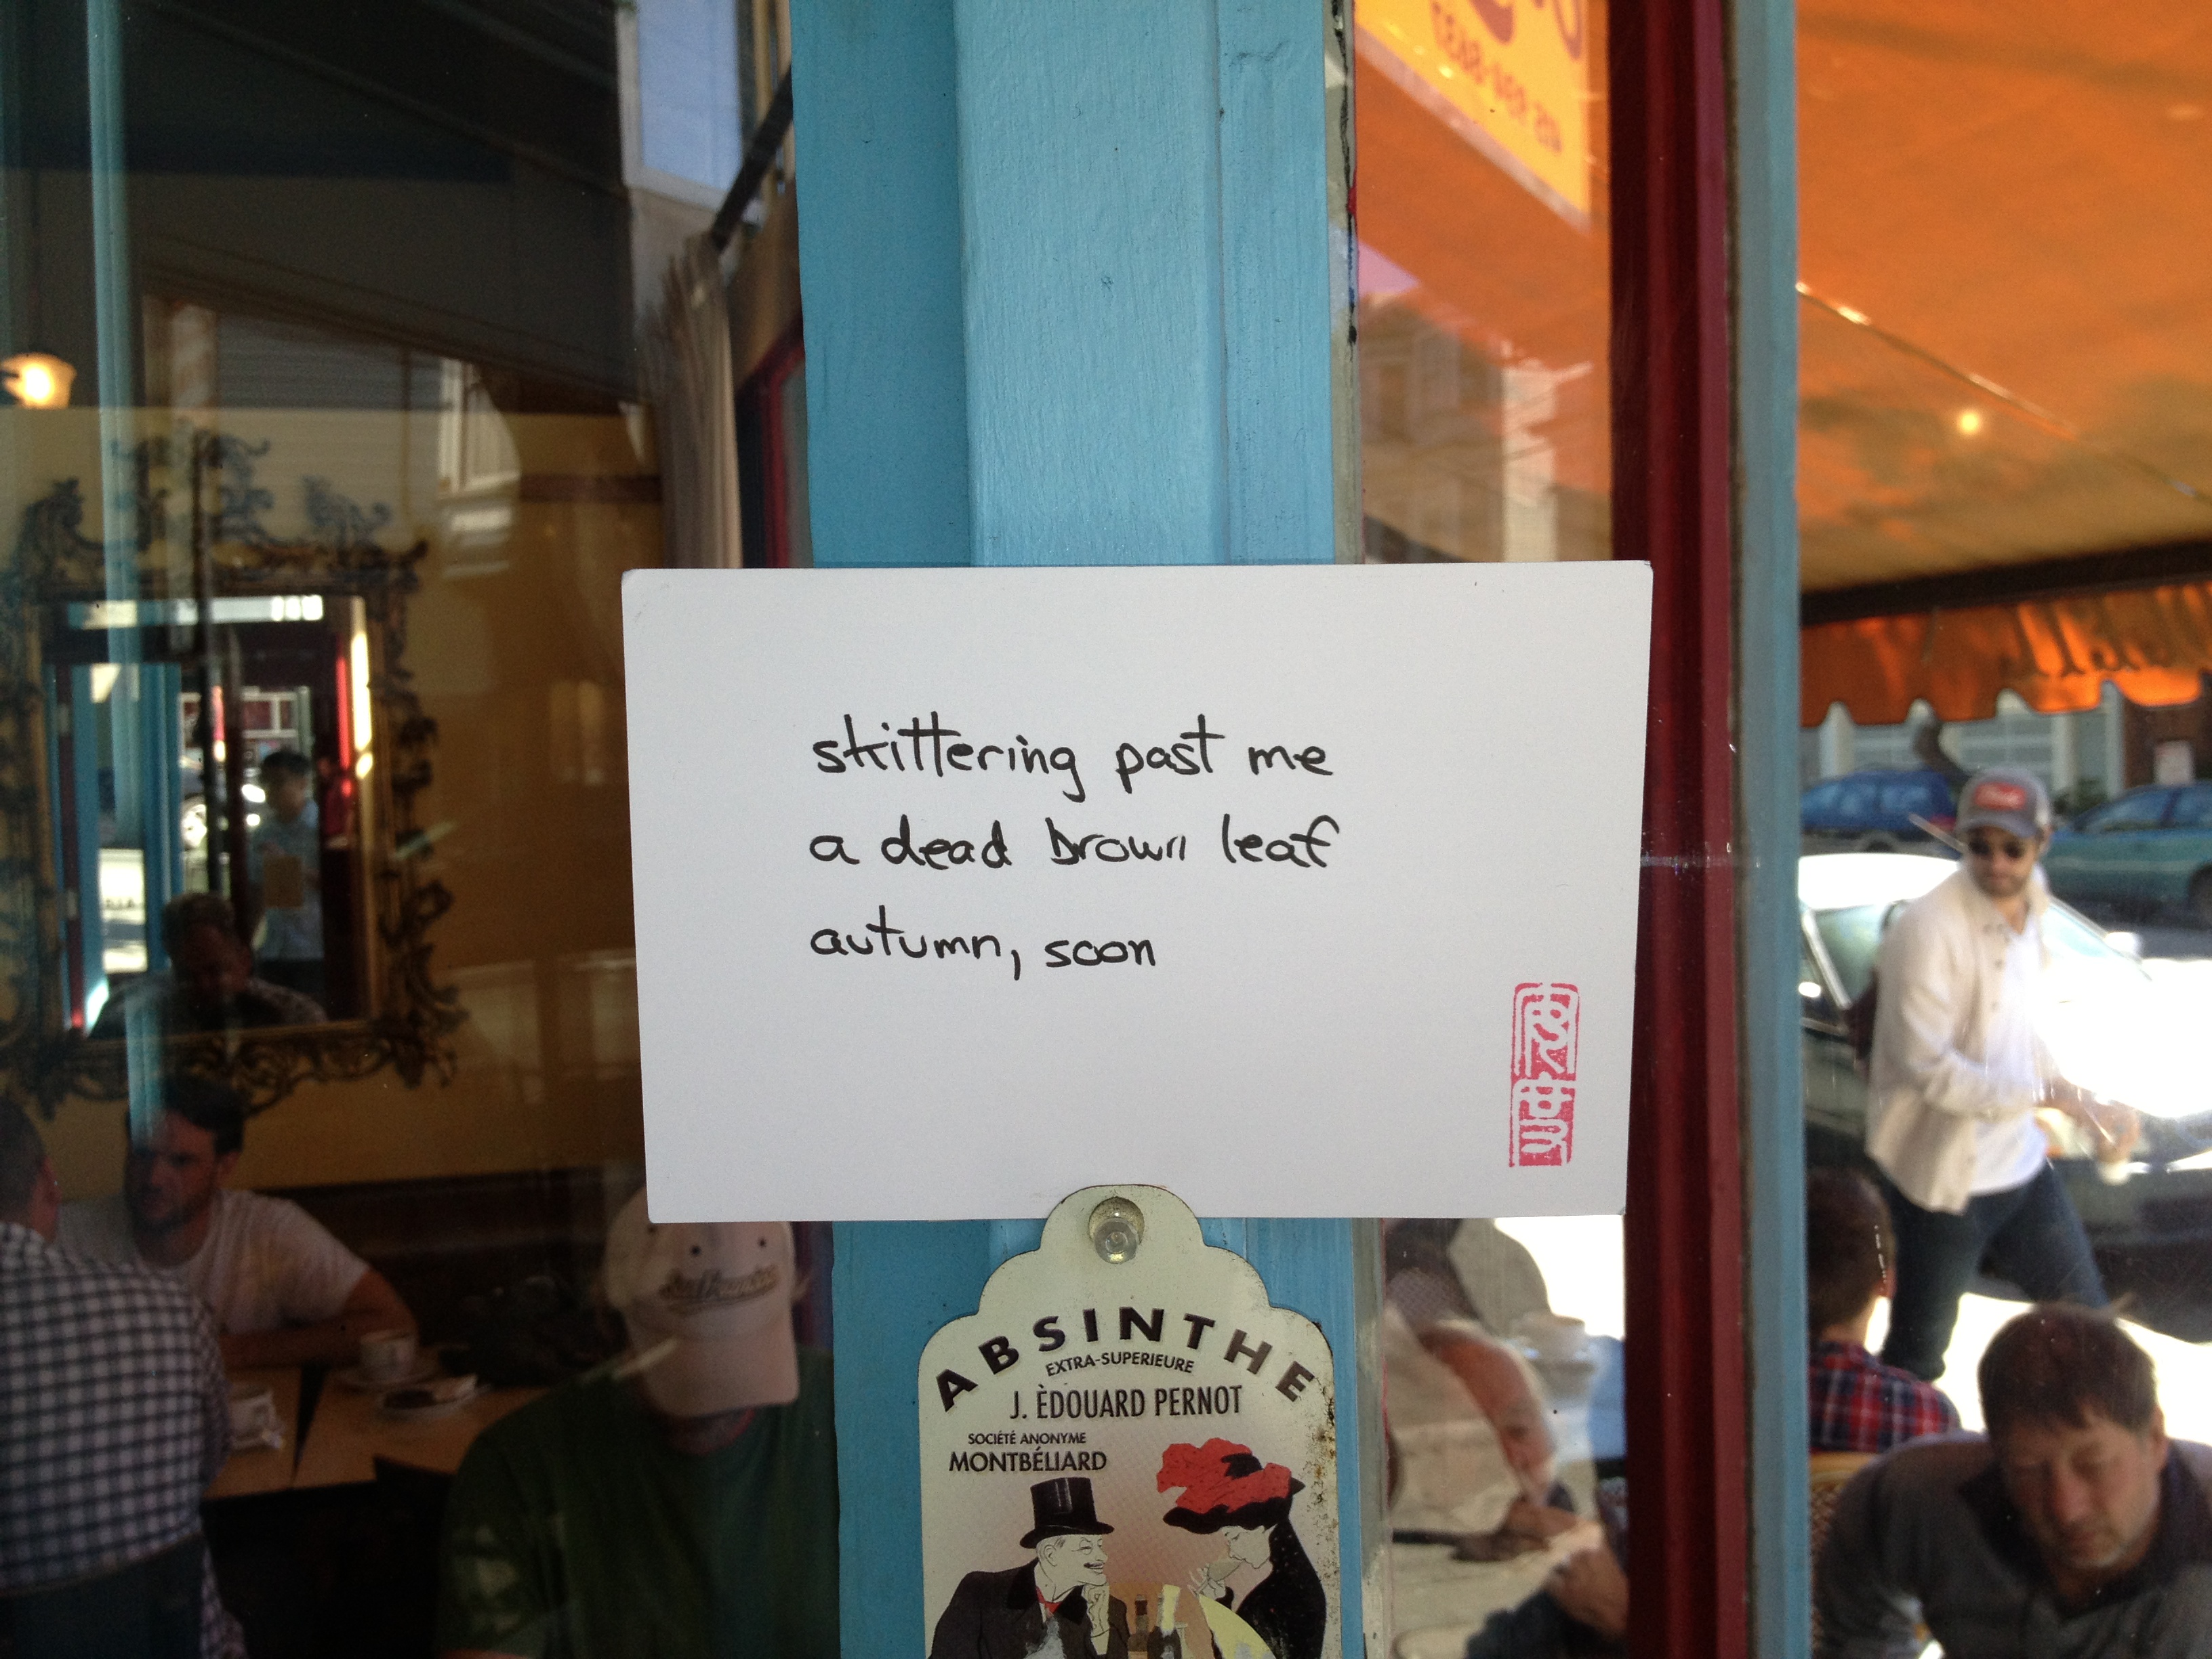 skittering past me
a dead brown leaf
autumn, soon
ABSINTHE
EXTRA-SUPERIEURE
J. ÈDOUARD PERNOT
SOCIÉTÉ ANONYME
MONTBÉLIARD